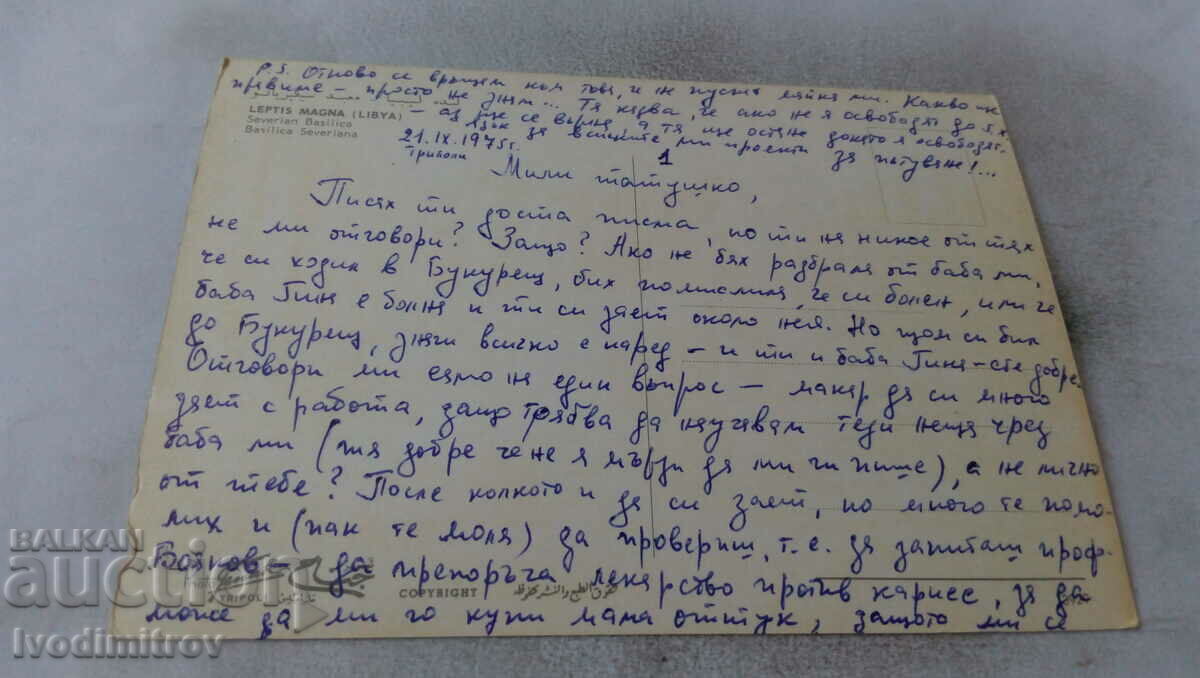 P.S. Отново се връщам към това, и не пуснаха майка ми. Какво ще
правиме – просто не зная... Тя казва, че ако не я освободят до 5.X
LEPTIS MAGNA (LIBYA)
Severian Basilica
Basilica Severiana
– аз ще се върна, а тя ще остане докато я освободят.
за всичките ми проекти за пътуване!...
21.IX.1975г.
Триполи
1
Мили татушко,
Писах ти доста писма, но ти на никое от тях
не ми отговори? Защо? Ако не бях разбрала от баба ми,
че си ходил в Букурещ, бих помислила, че си болен, или че
баба Гина е болна и ти си зает около нея. Но щом си бил
до Букурещ, значи всичко е наред – и ти и баба Гина – сте добре.
Отговори ми само на един въпрос – макар да си много
зает с работа, защо трябва да научавам тези неща чрез
баба ми (тя добре че не я мързи да ми ги пише), а не лично
от тебе? После колкото и да си зает, но много те помо-
лих и (пак те моля) да провериш, т.е. да запиташ проф.
Бояков – да препоръча лекарство против кариес, за да
може да ми го купи мама оттук, защото ми се
TRIPOLI
COPYRIGHT
حقوق الطبع والنشر محفوظة
BALKAN
auction
Ivodimitrov